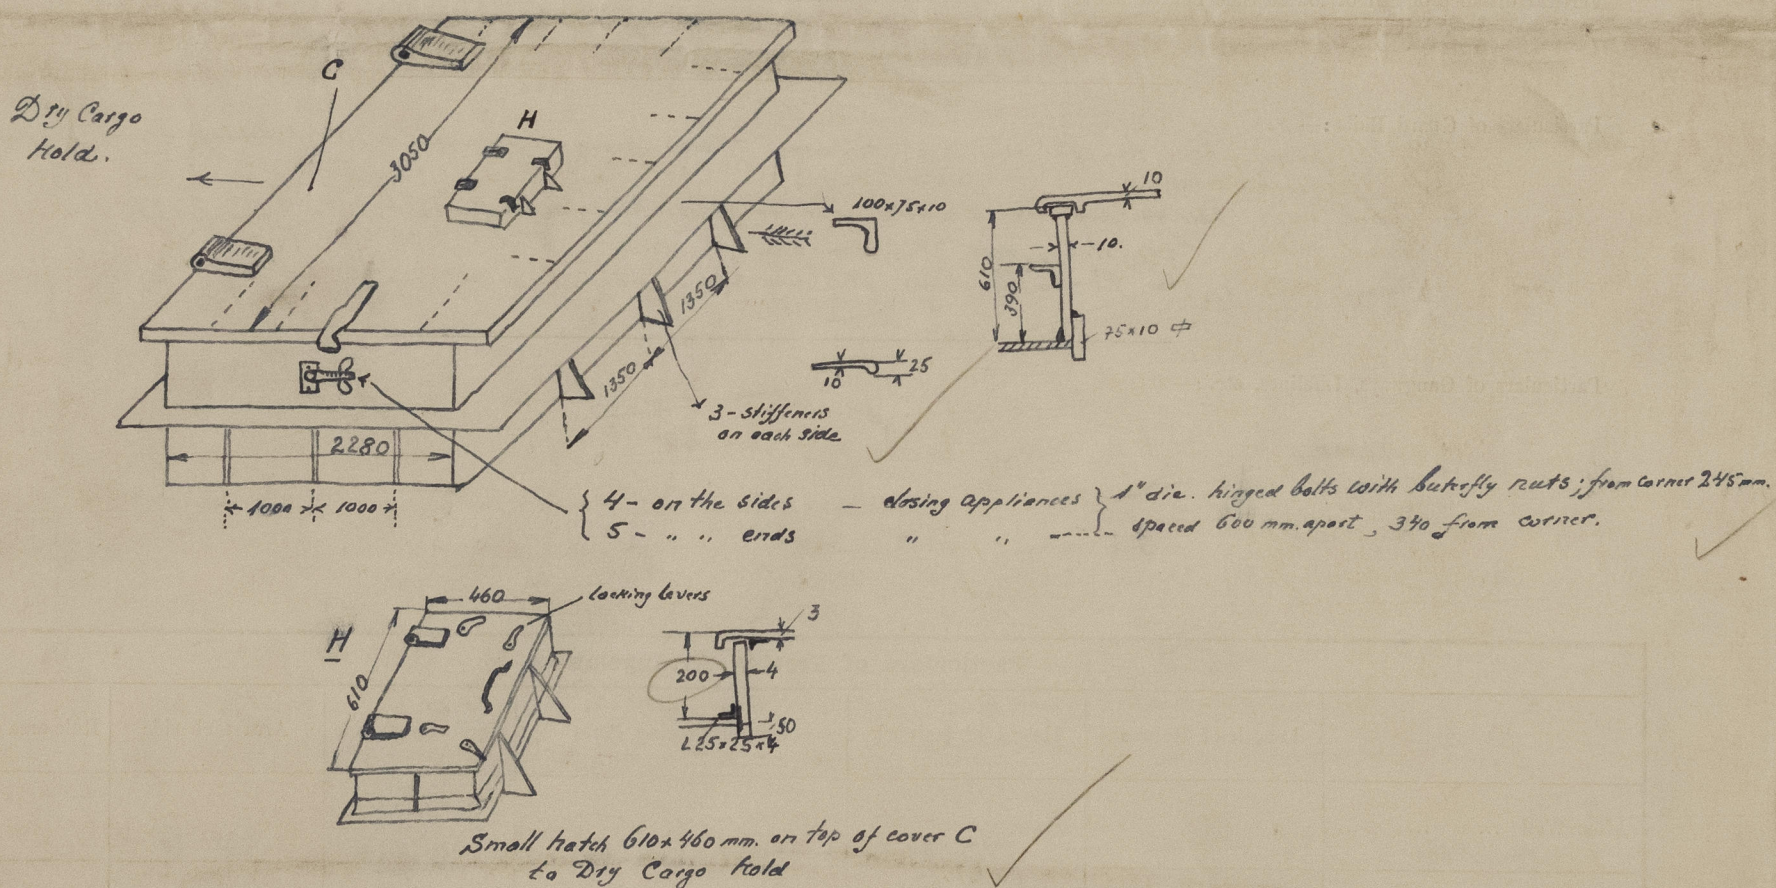 C
Dry Cargo
Hold.
3050
H
100x75x10
10
10.
610
390
75x10
1350
1350
10
25
3 - stiffeners
on each side
2280
1000 1000
{ 4 - on the sides — closing appliances } 1" dia. hinged bolts with buterfly nuts; from corner 245 mm.
5 - " " ends " " ----- spaced 600 mm. apart, 340 from corner.
460
locking levers
H
610
3
200
4
50
L25x25x4
Small hatch 610x460 mm. on top of cover C
to Dry Cargo hold